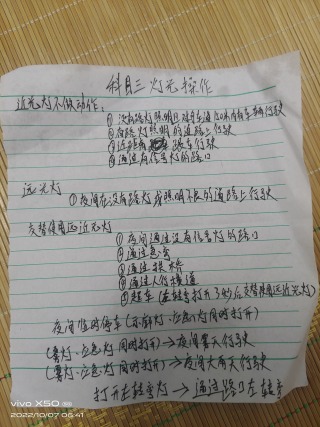 科目三 灯光 操作
近光灯不做动作:
① 没有路灯照明且对向车道 内有车辆行驶
② 有路灯照明的道路上行驶
③ 近距离 跟车行驶
④ 通过有信号灯的路口
远光灯
① 夜间在没有路灯或照明不良的道路上行驶
交替使用远近光灯
① 夜间通过没有信号灯的路口
② 通过急弯
③ 通过拱桥
④ 通过人行横道
⑤ 超车 (左转弯打开了的后交替使用远近光灯)
夜间临时停车 (示廓灯、应急灯同时打开)
(雾灯、应急灯同时打开) → 夜间雾天行驶
(雾灯、应急灯同时打开) → 夜间大雨天行驶
打开左转弯灯 → 通过路口左转弯
vivo X50
2022/10/07 06:41